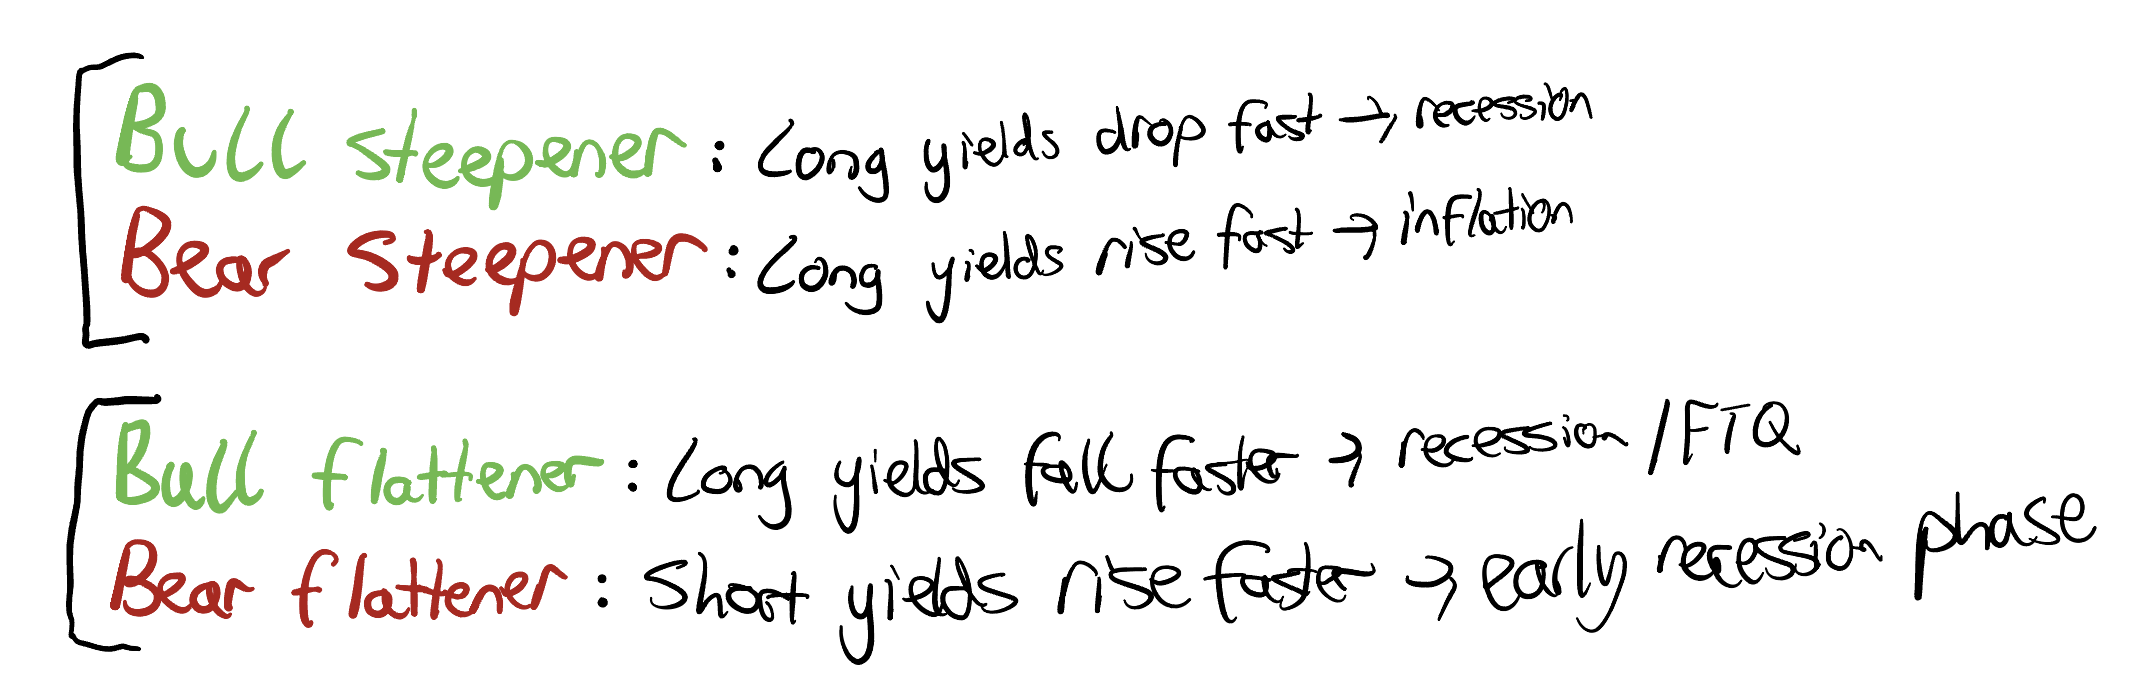 Bull steepener : Long yields drop fast → recession
Bear steepener : Long yields rise fast → inflation
Bull flattener : Long yields fall faster → recession /FTQ
Bear flattener : Short yields rise faster → early recession phase